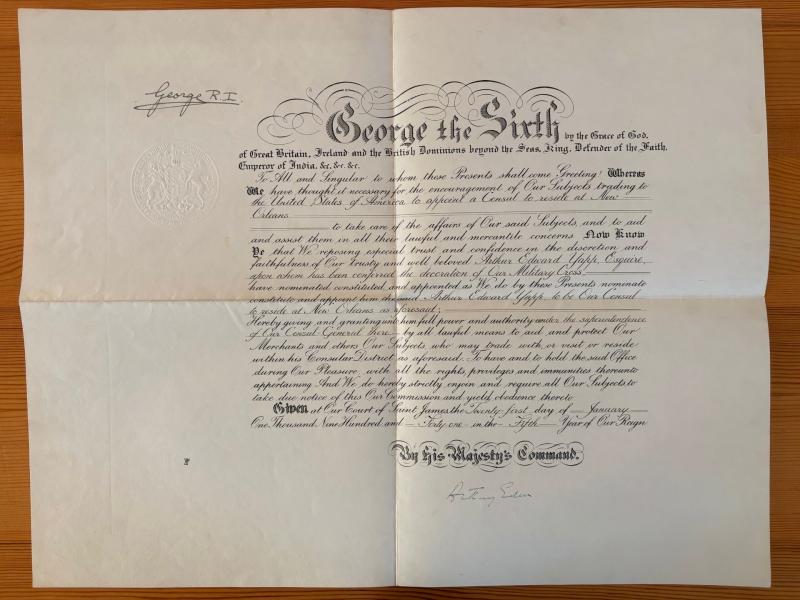 George R.I.
George the Sixth by the Grace of God,
of Great Britain, Ireland and the British Dominions beyond the Seas, King, Defender of the Faith,
Emperor of India, &c. &c. &c.
To All and Singular to whom these Presents shall come Greeting! Whereas
We have thought it necessary for the encouragement of Our Subjects trading to
the United States of America to appoint a Consul to reside at New
Orleans
to take care of the affairs of Our said Subjects, and to aid
and assist them in all their lawful and mercantile concerns Now Know
Ye that We reposing especial trust and confidence in the discretion and
faithfulness of Our trusty and well beloved Arthur Edward Yapp, Esquire,
upon whom has been conferred the decoration of Our Military Cross,
have nominated constituted and appointed as We do by these Presents nominate
constitute and appoint him the said Arthur Edward Yapp, to be Our Consul
to reside at New Orleans as aforesaid;
Hereby giving and granting unto him full power and authority under the superintendence
of Our Consul General there by all lawful means to aid and protect Our
Merchants and others Our Subjects who may trade with, or visit or reside
within his Consular District as aforesaid. To have and to hold the said Office
during Our Pleasure, with all the rights, privileges and immunities thereunto
appertaining And We do hereby strictly enjoin and require all Our Subjects to
take due notice of this Our Commission and yield obedience thereto
Given at Our Court of Saint James the Twenty first day of January
One Thousand Nine Hundred and Forty one in the Fifth Year of Our Reign
By His Majesty's Command.
Anthony Eden